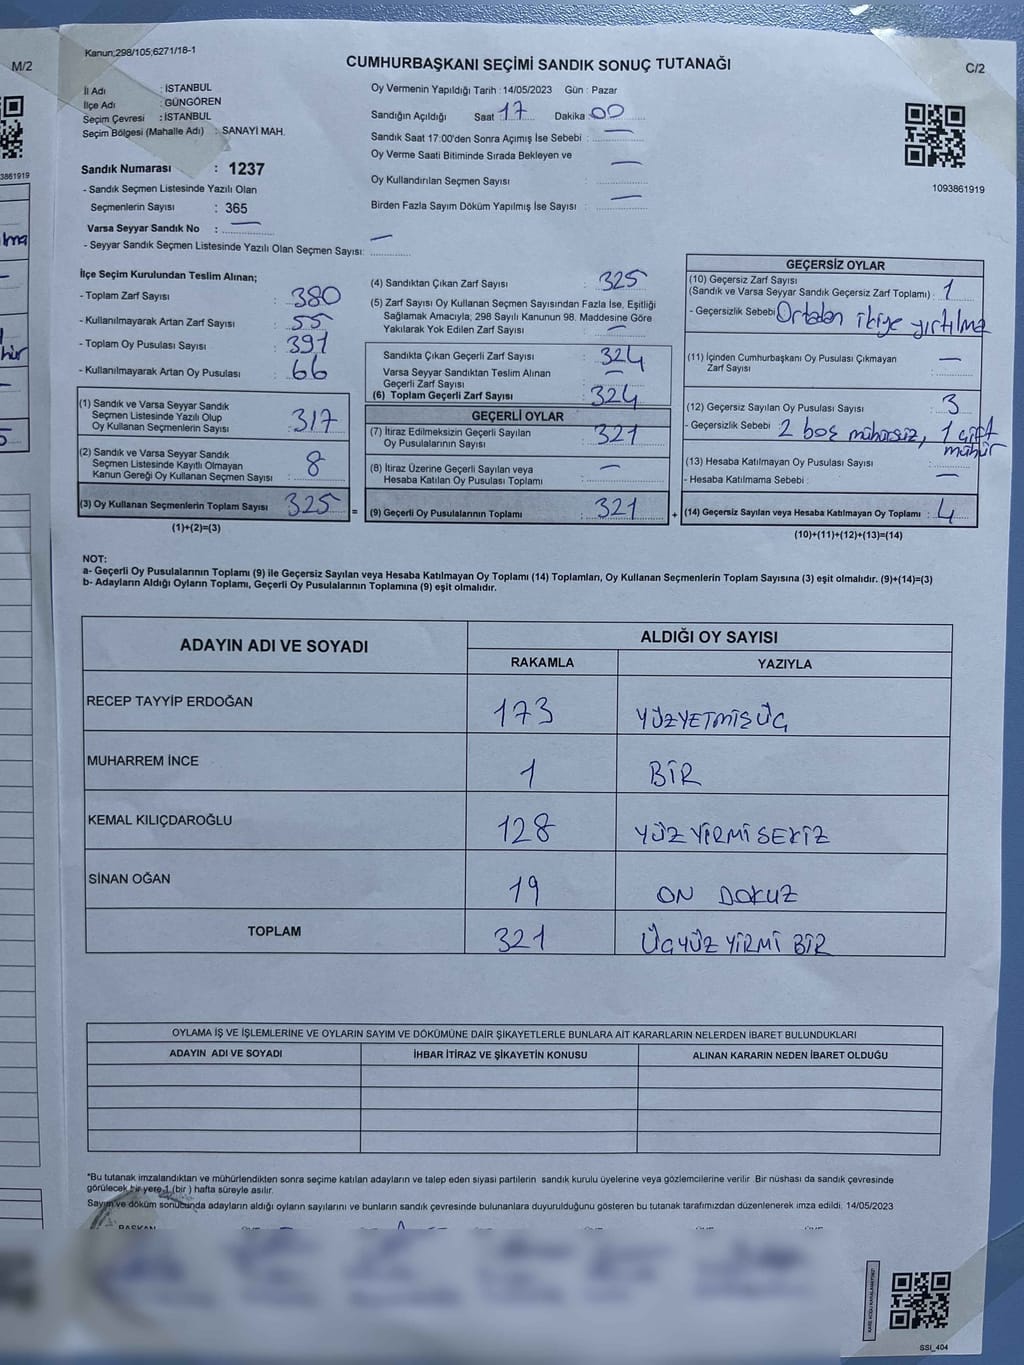 M/2
Kanun;298/105;6271/18-1
CUMHURBAŞKANI SEÇİMİ SANDIK SONUÇ TUTANAĞI
C/2
İl Adı : İSTANBUL
İlçe Adı : GÜNGÖREN
Seçim Çevresi : İSTANBUL
Seçim Bölgesi (Mahalle Adı) : SANAYİ MAH.
Sandık Numarası : 1237
- Sandık Seçmen Listesinde Yazılı Olan
Seçmenlerin Sayısı : 365
Varsa Seyyar Sandık No : —
- Seyyar Sandık Seçmen Listesinde Yazılı Olan Seçmen Sayısı: —
Oy Vermenin Yapıldığı Tarih : 14/05/2023 Gün : Pazar
Sandığın Açıldığı Saat : 17 Dakika : 00
Sandık Saat 17:00'den Sonra Açımış İse Sebebi : —
Oy Verme Saati Bitiminde Sırada Bekleyen ve
Oy Kullandırılan Seçmen Sayısı : —
Birden Fazla Sayım Döküm Yapılmış İse Sayısı : —
1093861919
3861919
İlçe Seçim Kurulundan Teslim Alınan;
- Toplam Zarf Sayısı : 380
- Kullanılmayarak Artan Zarf Sayısı : 55
- Toplam Oy Pusulası Sayısı : 391
- Kullanılmayarak Artan Oy Pusulası : 66
(1) Sandık ve Varsa Seyyar Sandık
Seçmen Listesinde Yazılı Olup
Oy Kullanan Seçmenlerin Sayısı : 317
(2) Sandık ve Varsa Seyyar Sandık
Seçmen Listesinde Kayıtlı Olmayan
Kanun Gereği Oy Kullanan Seçmen Sayısı : 8
(3) Oy Kullanan Seçmenlerin Toplam Sayısı : 325
(1)+(2)=(3)
=
(4) Sandıktan Çıkan Zarf Sayısı : 325
(5) Zarf Sayısı Oy Kullanan Seçmen Sayısından Fazla İse, Eşitliği
Sağlamak Amacıyla; 298 Sayılı Kanunun 98. Maddesine Göre
Yakılarak Yok Edilen Zarf Sayısı : —
Sandıkta Çıkan Geçerli Zarf Sayısı : 324
Varsa Seyyar Sandıktan Teslim Alınan
Geçerli Zarf Sayısı : —
(6) Toplam Geçerli Zarf Sayısı : 324
GEÇERLİ OYLAR
(7) İtiraz Edilmeksizin Geçerli Sayılan
Oy Pusulalarının Sayısı : 321
(8) İtiraz Üzerine Geçerli Sayılan veya
Hesaba Katılan Oy Pusulası Toplamı : —
(9) Geçerli Oy Pusulalarının Toplamı : 321
+
GEÇERSİZ OYLAR
(10) Geçersiz Zarf Sayısı
(Sandık ve Varsa Seyyar Sandık Geçersiz Zarf Toplamı) : 1
- Geçersizlik Sebebi : Ortadan ikiye yırtılma
(11) İçinden Cumhurbaşkanı Oy Pusulası Çıkmayan
Zarf Sayısı : —
(12) Geçersiz Sayılan Oy Pusulası Sayısı : 3
- Geçersizlik Sebebi : 2 boş mühürsüz, 1 çift
mühür
(13) Hesaba Katılmayan Oy Pusulası Sayısı : —
- Hesaba Katılmama Sebebi :
(14) Geçersiz Sayılan veya Hesaba Katılmayan Oy Toplamı : 4
(10)+(11)+(12)+(13)=(14)
NOT:
a- Geçerli Oy Pusulalarının Toplamı (9) ile Geçersiz Sayılan veya Hesaba Katılmayan Oy Toplamı (14) Toplamları, Oy Kullanan Seçmenlerin Toplam Sayısına (3) eşit olmalıdır. (9)+(14)=(3)
b- Adayların Aldığı Oyların Toplamı, Geçerli Oy Pusulalarının Toplamına (9) eşit olmalıdır.
ADAYIN ADI VE SOYADI
ALDIĞI OY SAYISI
RAKAMLA YAZIYLA
RECEP TAYYİP ERDOĞAN 173 YÜZYETMİŞÜÇ
MUHARREM İNCE 1 BİR
KEMAL KILIÇDAROĞLU 128 YÜZ YİRMİ SEKİZ
SİNAN OĞAN 19 ON DOKUZ
TOPLAM 321 ÜÇYÜZ YİRMİ BİR
OYLAMA İŞ VE İŞLEMLERİNE VE OYLARIN SAYIM VE DÖKÜMÜNE DAİR ŞİKAYETLERLE BUNLARA AİT KARARLARIN NELERDEN İBARET BULUNDUKLARI
ADAYIN ADI VE SOYADI İHBAR İTİRAZ VE ŞİKAYETİN KONUSU ALINAN KARARIN NEDEN İBARET OLDUĞU
*Bu tutanak imzalandıktan ve mühürlendikten sonra seçime katılan adayların ve talep eden siyasi partilerin sandık kurulu üyelerine veya gözlemcilerine verilir. Bir nüshası da sandık çevresinde
görülecek bir yere 1 (bir ) hafta süreyle asılır.
Sayım ve döküm sonucunda adayların aldığı oyların sayılarını ve bunların sandık çevresinde bulunanlara duyurulduğunu gösteren bu tutanak tarafımızdan düzenlenerek imza edildi. 14/05/2023
BAŞKAN
SSI_404